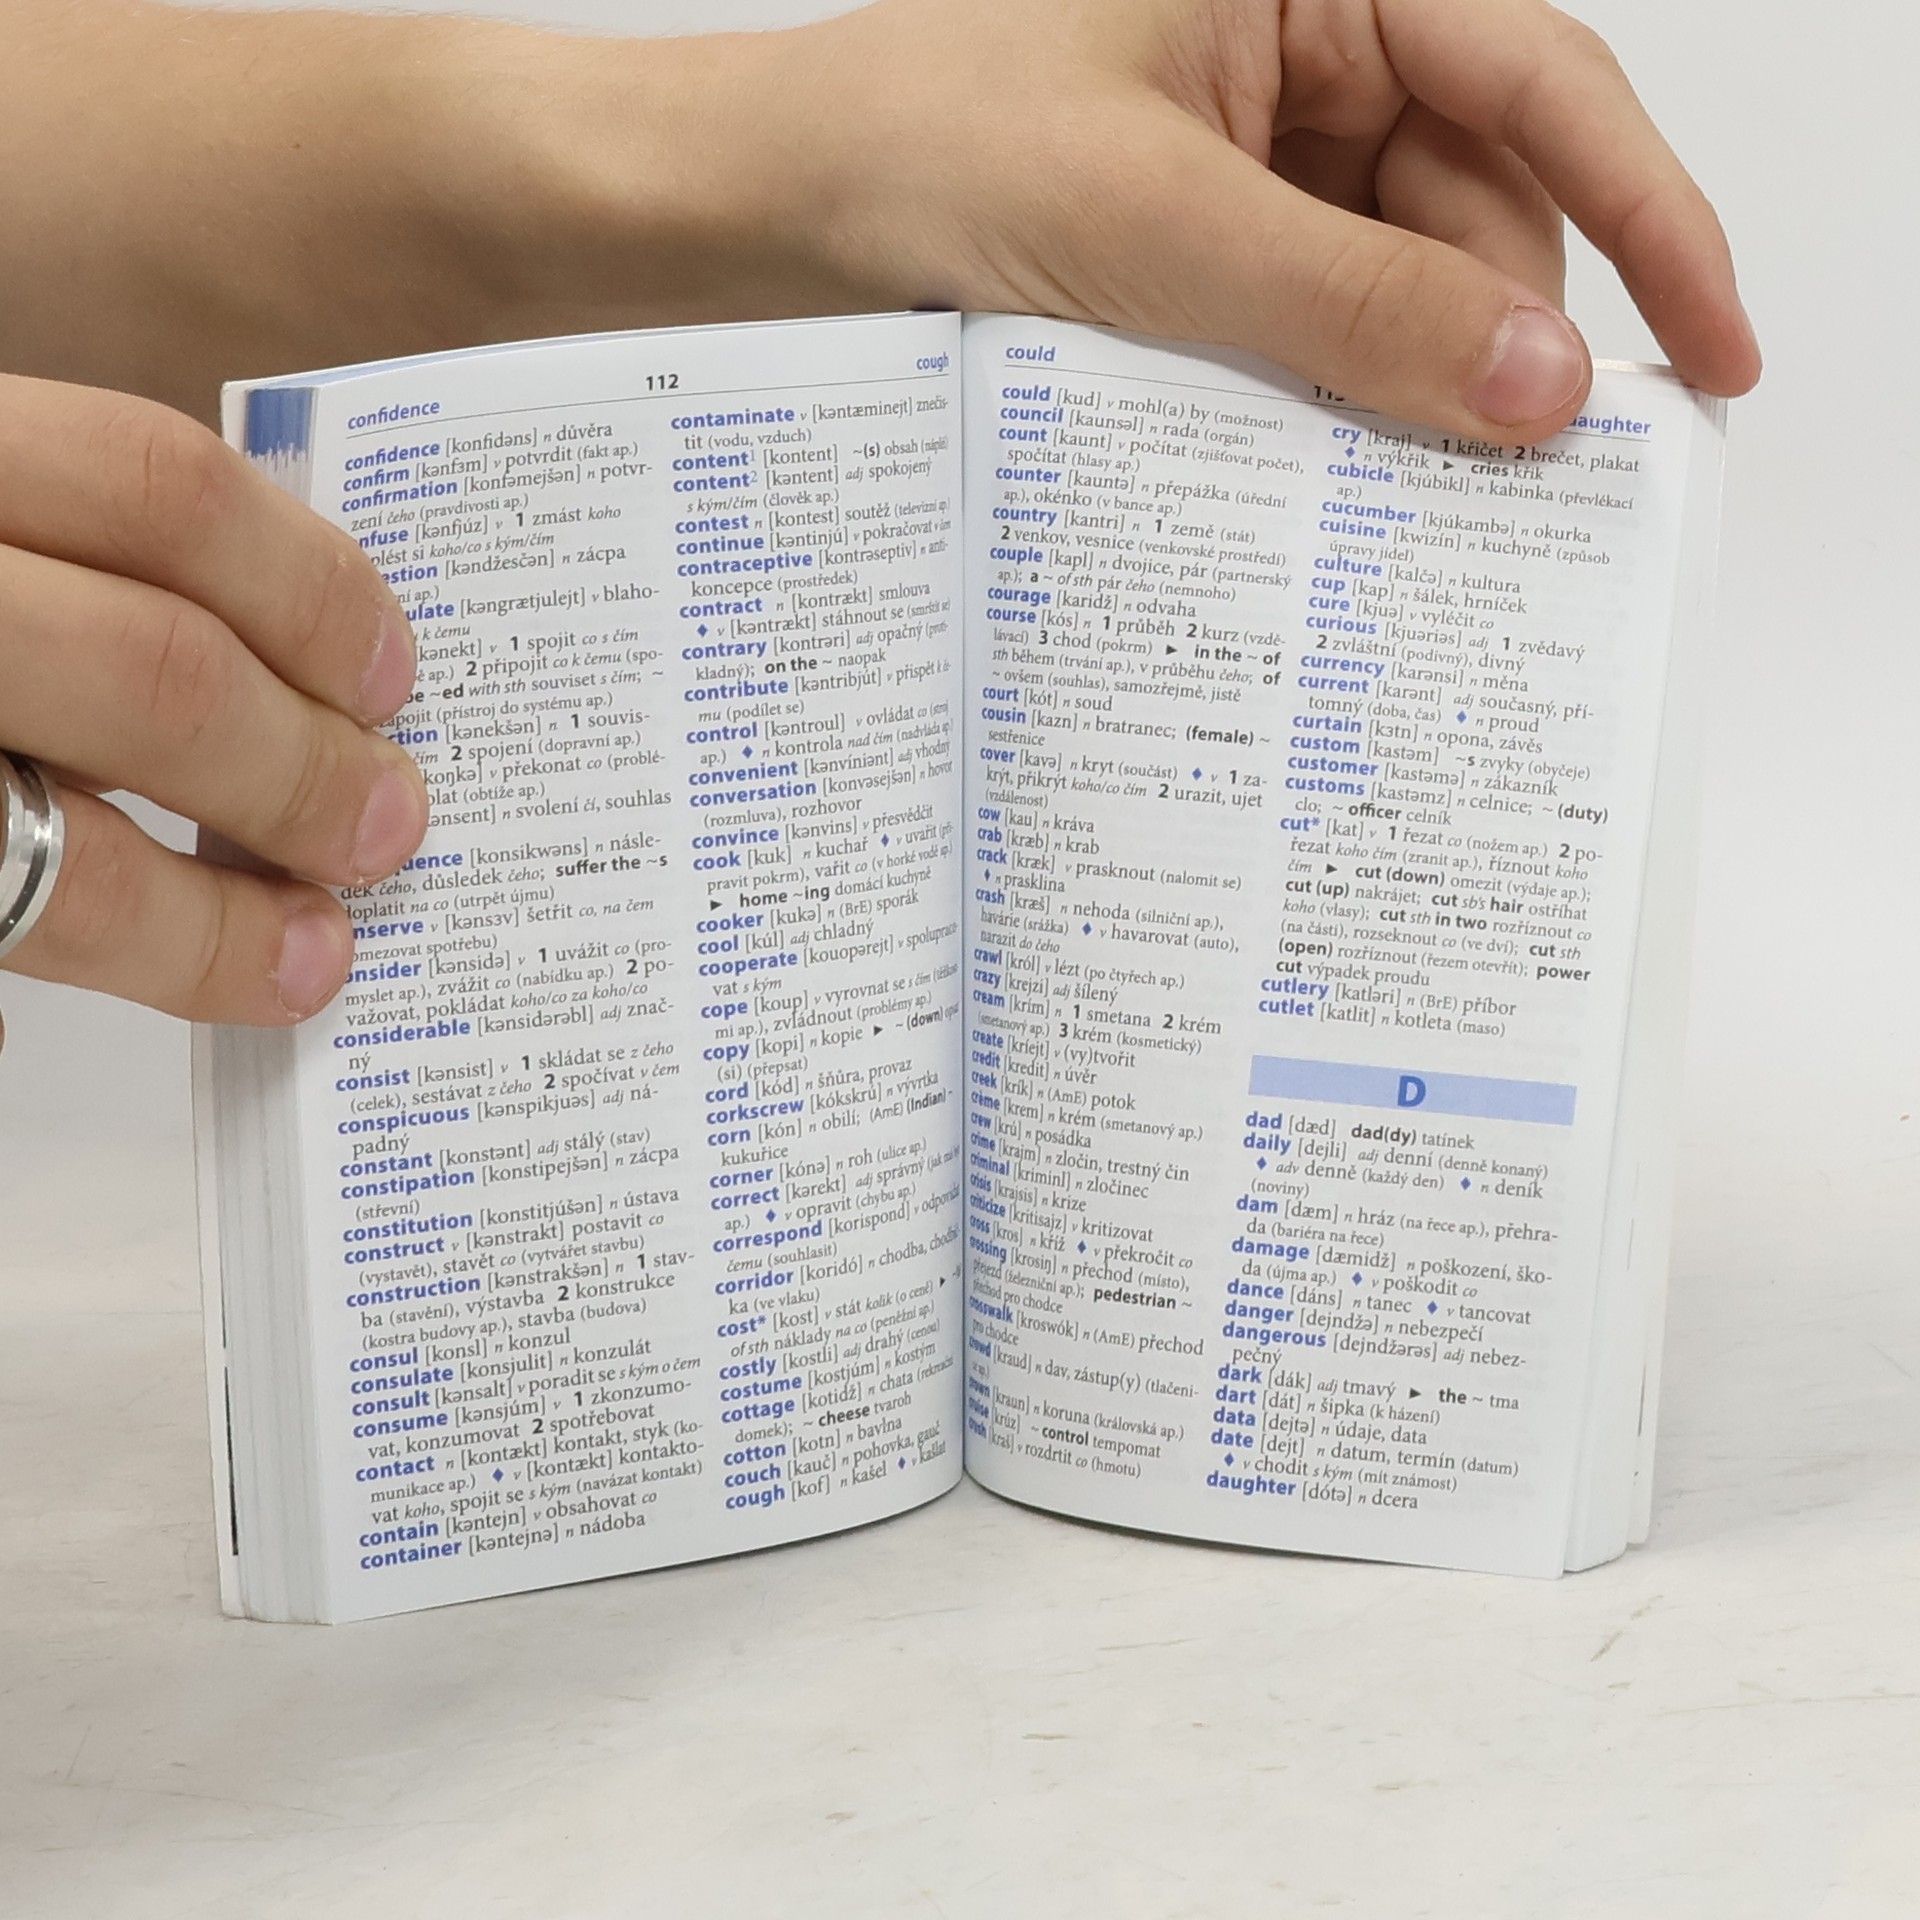 confidence
112
cough
confidence [konfidəns] n důvěra
confirm [kənfɜm] v potvrdit (fakt ap.)
confirmation [konfəmejšən] n potvr-
zení čeho (pravdivosti ap.)
nfuse [kənfjúz] v 1 zmást koho
plést si koho/co s kým/čím
estion [kəndžesčən] n zácpa
ní ap.)
ulate [kəngrætjulejt] v blaho-
k čemu
[kənekt] v 1 spojit co s čím
ap.) 2 připojit co k čemu (spo-
be ~ed with sth souviset s čím; ~
zapojit (přístroj do systému ap.)
ction [kənekšən] n 1 souvis-
čím 2 spojení (dopravní ap.)
[koŋkə] v překonat co (problé-
olat (obtíže ap.)
[kənsent] n svolení čí, souhlas
uence [konsikwəns] n násle-
dek čeho, důsledek čeho; suffer the ~s
doplatit na co (utrpět újmu)
nserve v [kənsɜv] šetřit co, na čem
omezovat spotřebu)
onsider [kənsidə] v 1 uvážit co (pro-
myslet ap.), zvážit co (nabídku ap.) 2 po-
važovat, pokládat koho/co za koho/co
considerable [kənsidərəbl] adj znač-
ný
consist [kənsist] v 1 skládat se z čeho
(celek), sestávat z čeho 2 spočívat v čem
conspicuous [kənspikjuəs] adj ná-
padný
constant [konstənt] adj stálý (stav)
constipation [konstipejšən] n zácpa
(střevní)
constitution [konstitjúšən] n ústava
construct v [kənstrakt] postavit co
(vystavět), stavět co (vytvářet stavbu)
construction [kənstrakšən] n 1 stav-
ba (stavění), výstavba 2 konstrukce
(kostra budovy ap.), stavba (budova)
consul [konsl] n konzul
consulate [konsjulit] n konzulát
consult [kənsalt] v poradit se s kým o čem
consume [kənsjúm] v 1 zkonzumo-
vat, konzumovat 2 spotřebovat
contact n [kontækt] kontakt, styk (ko-
munikace ap.) ◆ v [kontækt] kontakto-
vat koho, spojit se s kým (navázat kontakt)
contain [kəntejn] v obsahovat co
container [kəntejnə] n nádoba
contaminate v [kəntæminejt] znečis-
tit (vodu, vzduch)
content¹ [kontent] ~(s) obsah (náplň)
content² [kəntent] adj spokojený
s kým/čím (člověk ap.)
contest n [kontest] soutěž (televizní ap.)
continue [kəntinjú] v pokračovat v čem
contraceptive [kontrəseptiv] n anti-
koncepce (prostředek)
contract n [kontrækt] smlouva
◆ v [kəntrækt] stáhnout se (smrštit se)
contrary [kontrəri] adj opačný (proti-
kladný); on the ~ naopak
contribute [kəntribjút] v přispět k če-
mu (podílet se)
control [kəntroul] v ovládat co (stroj
ap.) ◆ n kontrola nad čím (nadvláda ap.)
convenient [kənvíniənt] adj vhodný
conversation [konvəsejšən] n hovor
(rozmluva), rozhovor
convince [kənvins] v přesvědčit
cook [kuk] n kuchař ◆ v uvařit (při-
pravit pokrm), vařit co (v horké vodě ap.)
► home ~ing domácí kuchyně
cooker [kukə] n (BrE) sporák
cool [kúl] adj chladný
cooperate [kouopərejt] v spolupraco-
vat s kým
cope [koup] v vyrovnat se s čím (těžkost-
mi ap.), zvládnout (problémy ap.)
copy [kopi] n kopie ► ~ (down) opsat
(si) (přepsat)
cord [kód] n šňůra, provaz
corkscrew [kókskrú] n vývrtka
corn [kón] n obilí; (AmE) (Indian) ~
kukuřice
corner [kónə] n roh (ulice ap.)
correct [kərekt] adj správný (jak má být
ap.) ◆ v opravit (chybu ap.)
correspond [korispond] v odpovídat
čemu (souhlasit)
corridor [koridó] n chodba, chodbič-
ka (ve vlaku)
cost* [kost] v stát kolik (o ceně) ►
of sth náklady na co (peněžní ap.)
costly [kostli] adj drahý (cenou)
costume [kostjúm] n kostým
cottage [kotidž] n chata (rekreační
domek); ~ cheese tvaroh
cotton [kotn] n bavlna
couch [kauč] n pohovka, gauč
cough [kof] n kašel ◆ v kašlat
could
113
daughter
could [kud] v mohl(a) by (možnost)
council [kaunsəl] n rada (orgán)
count [kaunt] v počítat (zjišťovat počet),
spočítat (hlasy ap.)
counter [kauntə] n přepážka (úřední
ap.), okénko (v bance ap.)
country [kantri] n 1 země (stát)
2 venkov, vesnice (venkovské prostředí)
couple [kapl] n dvojice, pár (partnerský
ap.); a ~ of sth pár čeho (nemnoho)
courage [karidž] n odvaha
course [kós] n 1 průběh 2 kurz (vzdě-
lávací) 3 chod (pokrm) ► in the ~ of
sth během (trvání ap.), v průběhu čeho; of
~ ovšem (souhlas), samozřejmě, jistě
court [kót] n soud
cousin [kazn] n bratranec; (female) ~
sestřenice
cover [kavə] n kryt (součást) ◆ v 1 za-
krýt, přikrýt koho/co čím 2 urazit, ujet
(vzdálenost)
cow [kau] n kráva
crab [kræb] n krab
crack [kræk] v prasknout (nalomit se)
◆ n prasklina
crash [kræš] n nehoda (silniční ap.),
havárie (srážka) ◆ v havarovat (auto),
narazit do čeho
crawl [król] v lézt (po čtyřech ap.)
crazy [krejzi] adj šílený
cream [krím] n 1 smetana 2 krém
(smetanový ap.) 3 krém (kosmetický)
create [kriejt] v (vy)tvořit
credit [kredit] n úvěr
creek [krík] n (AmE) potok
crème [krem] n krém (smetanový ap.)
crew [krú] n posádka
crime [krajm] n zločin, trestný čin
criminal [kriminl] n zločinec
crisis [krajsis] n krize
criticize [kritisajz] v kritizovat
cross [kros] n kříž ◆ v překročit co
crossing [krosiŋ] n přechod (místo),
přejezd (železniční ap.); pedestrian ~
přechod pro chodce
crosswalk [kroswók] n (AmE) přechod
pro chodce
crowd [kraud] n dav, zástup(y) (tlačeni-
ap.)
crown [kraun] n koruna (královská ap.)
cruise [krúz] ~ control tempomat
crush [kraš] v rozdrtit co (hmotu)
cry [kraj] v 1 křičet 2 brečet, plakat
◆ n výkřik ► cries křik
cubicle [kjúbikl] n kabinka (převlékací
ap.)
cucumber [kjúkambə] n okurka
cuisine [kwizín] n kuchyně (způsob
úpravy jídel)
culture [kalčə] n kultura
cup [kap] n šálek, hrníček
cure [kjuə] v vyléčit co
curious [kjuəriəs] adj 1 zvědavý
2 zvláštní (podivný), divný
currency [karənsi] n měna
current [karənt] adj současný, pří-
tomný (doba, čas) ◆ n proud
curtain [kɜtn] n opona, závěs
custom [kastəm] ~s zvyky (obyčeje)
customer [kastəmə] n zákazník
customs [kastəmz] n celnice; ~ (duty)
clo; ~ officer celník
cut* [kat] v 1 řezat co (nožem ap.) 2 po-
řezat koho čím (zranit ap.), říznout koho
čím ► cut (down) omezit (výdaje ap.);
cut (up) nakrájet; cut sb's hair ostříhat
koho (vlasy); cut sth in two rozříznout co
(na části), rozseknout co (ve dví); cut sth
(open) rozříznout (řezem otevřít); power
cut výpadek proudu
cutlery [katləri] n (BrE) příbor
cutlet [katlit] n kotleta (maso)
D
dad [dæd] dad(dy) tatínek
daily [dejli] adj denní (denně konaný)
◆ adv denně (každý den) ◆ n deník
(noviny)
dam [dæm] n hráz (na řece ap.), přehra-
da (bariéra na řece)
damage [dæmidž] n poškození, ško-
da (újma ap.) ◆ v poškodit co
dance [dáns] n tanec ◆ v tancovat
danger [dejndžə] n nebezpečí
dangerous [dejndžərəs] adj nebez-
pečný
dark [dák] adj tmavý ► the ~ tma
dart [dát] n šipka (k házení)
data [dejtə] n údaje, data
date [dejt] n datum, termín (datum)
◆ v chodit s kým (mít známost)
daughter [dótə] n dcera